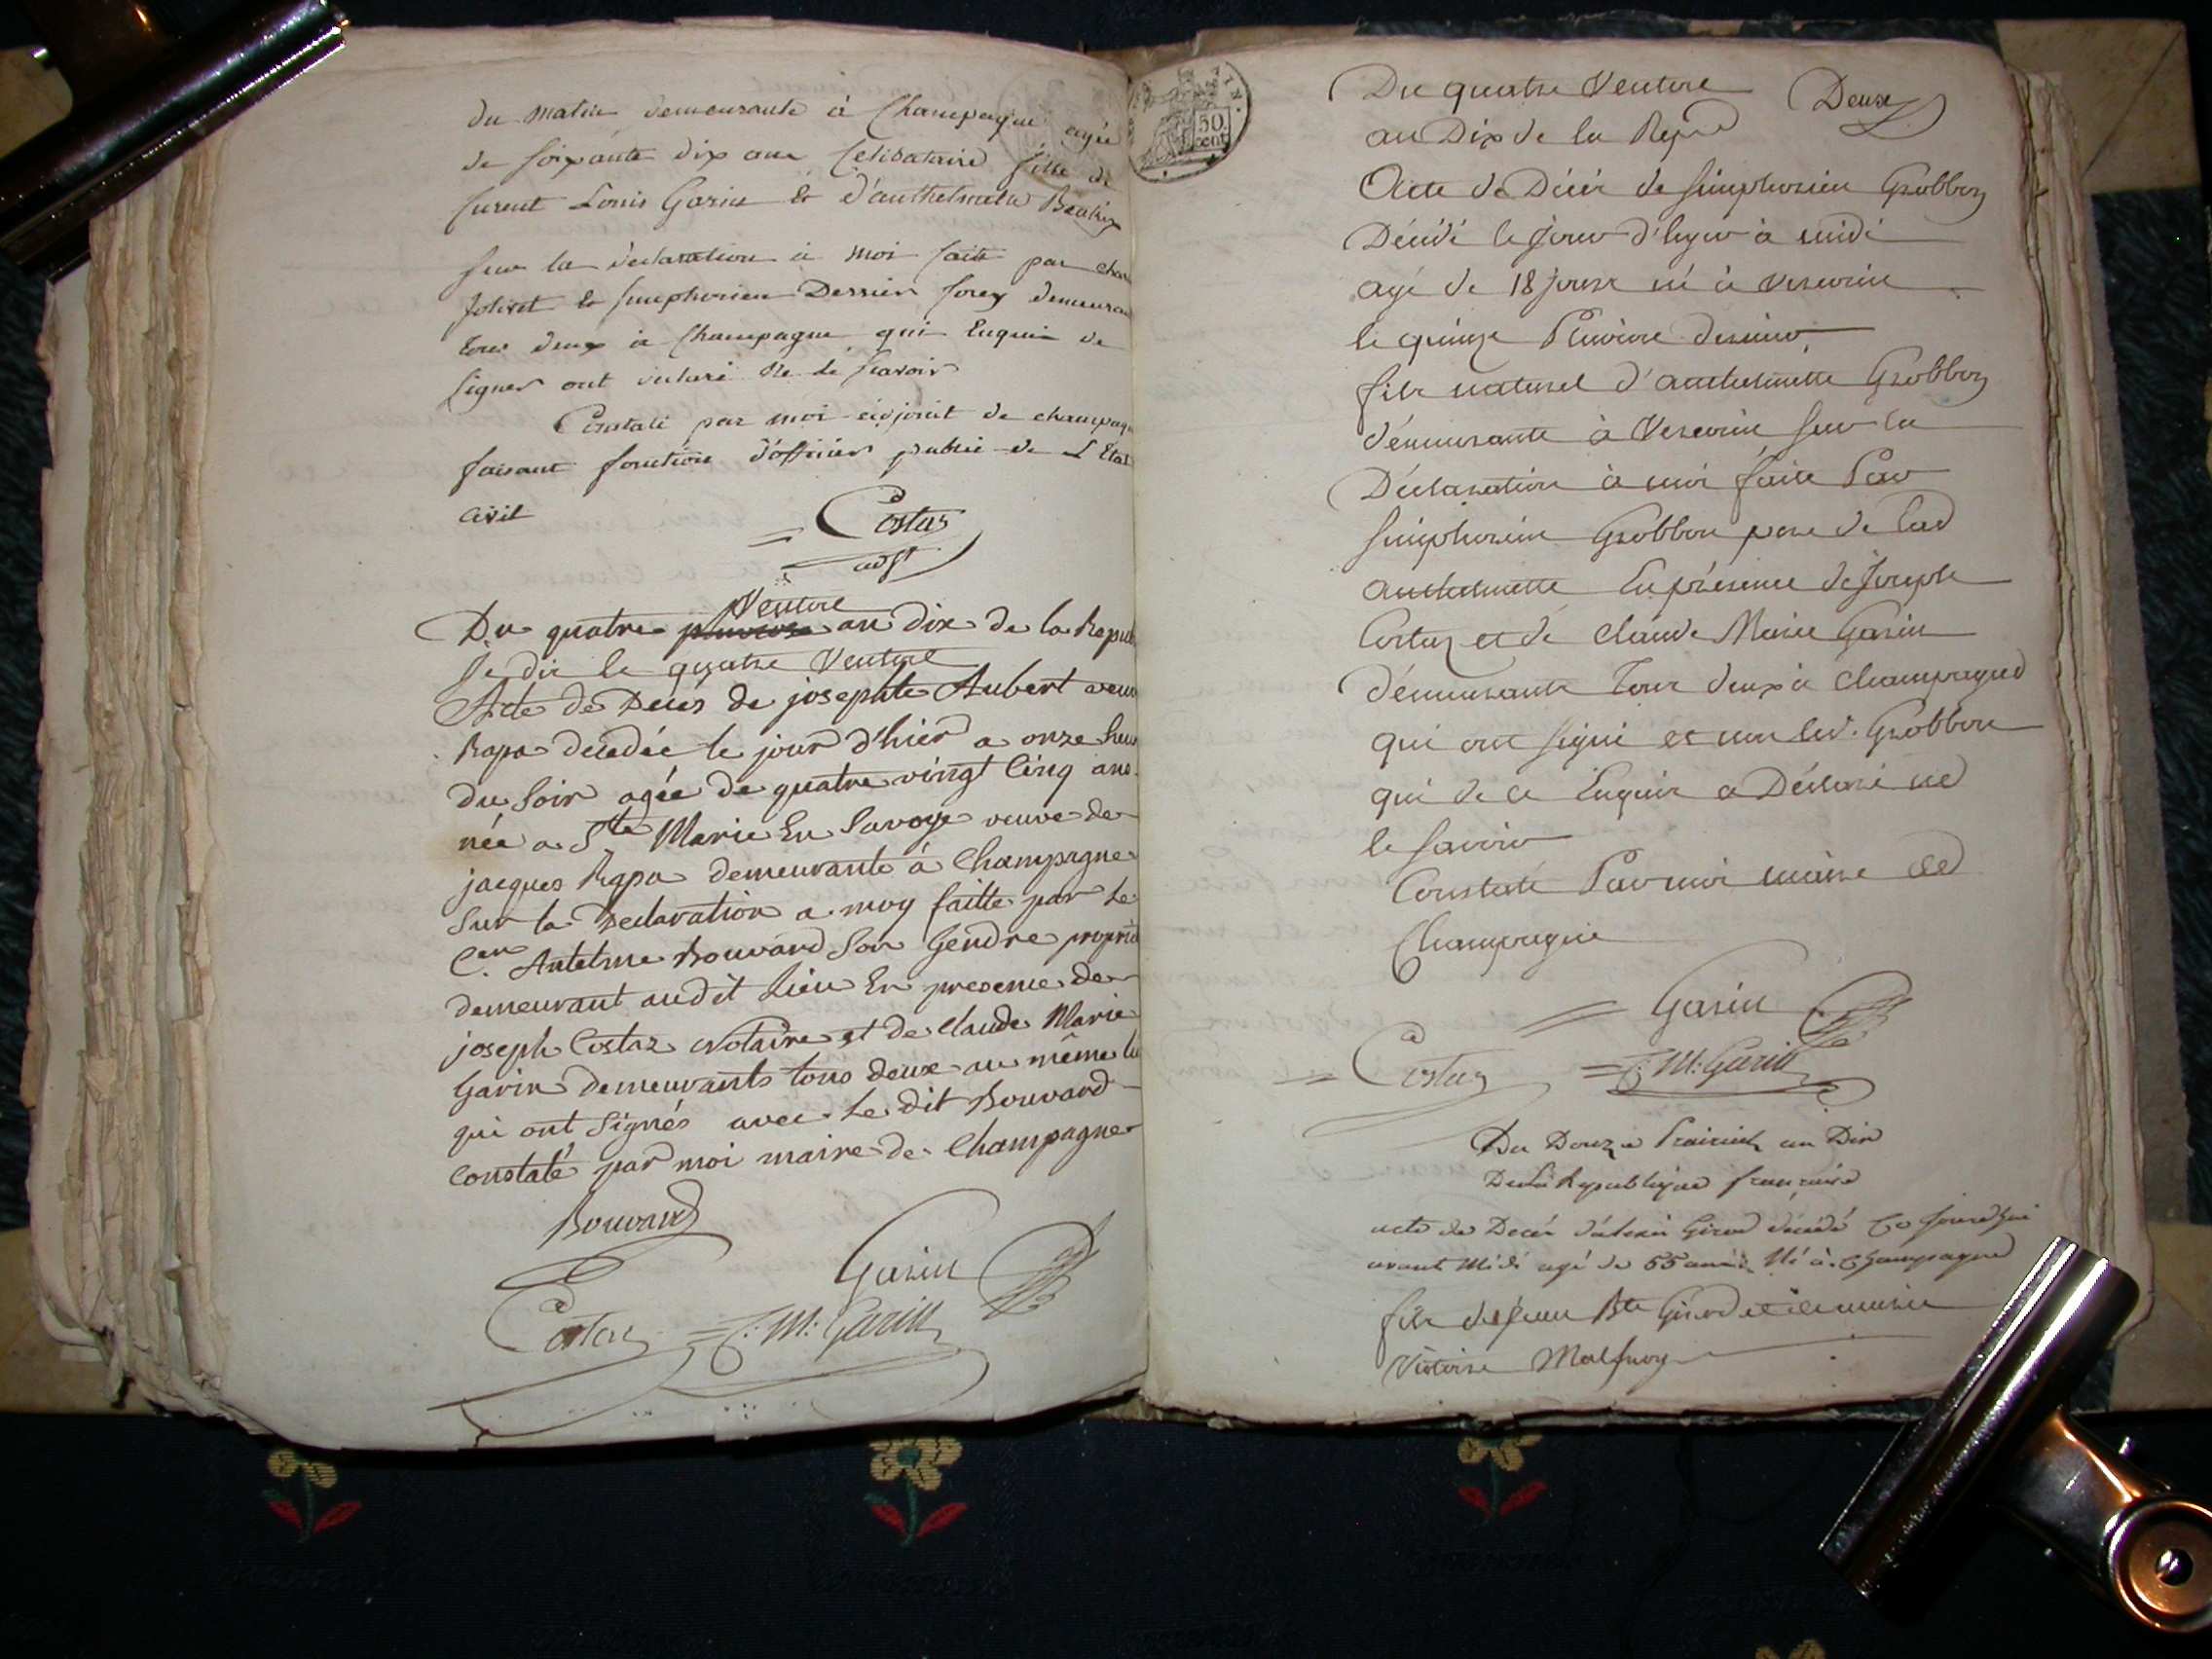 du matin demeurante à Champagne agée
de soixante dix ans Celibataire fille de
furent Louis Garin & d'anthelmette
sur la declaration à moi faite par
Jolivet & simphorien Derrier forey demeurant
tous deux à Champagne qui Enquis de
signer ont declaré ne le scavoir
Constaté par moi adjoint de champag
faisant fonction d'officier public de L'Etat
civil
Costaz
adjt
Ventose
Du quatre pluviose an dix de la Repub
Je dis le quatre Ventose
Acte de Decés de josephte Aubert veuve
Rapa decedée le jour d'hier a onze heur
du Soir agée de quatre vingt Cinq ans
née a Ste Marie En Savoye veuve de
jacques Rapa demeurante à Champagne
Sur la Declaration a moy faitte par Le
Cen Antelme Bouvard Son Gendre proprié
demeurant audit Lieu En presence de
joseph Costaz Notaire et de Claude Marie
Garin demeurants tous deux au même li
qui ont Signés avec Le dit Bouvard
Constaté par moi maire de Champagne
Bouvard
Garin
Costaz C: M: Garin
50
cent
Du quatre Ventose
Deux
an Dix de la Repue
Acte de Décès de simphorien Grobbon
Décédé le jour d'hyer à midi
agé de 18 jours né à
le quinze Pluviose dernier
fils naturel d'anthelmette Grobbon
démeurante à sur la
Déclaration à moi faite Par
simphorien Grobbon pere de lad
anthelmette En présence de Joseph
Costaz et de Claude Marie Garin
démeurants Tous deux à Champagne
qui ont signé et non led. Grobbon
qui de ce Enquis a Déclaré ne
le savoir
Constaté Par moi maire de
Champagne
Garin
Costaz C: M: Garin
Du Douze Prairial an Dix
De La Republique française
acte de Decés d'alexis Girod décédé Ce jourd'hui
avant Midi agé de 55 années Né à Champagne
fils de jean Bte Girod et de marie
Victoire Malfroy